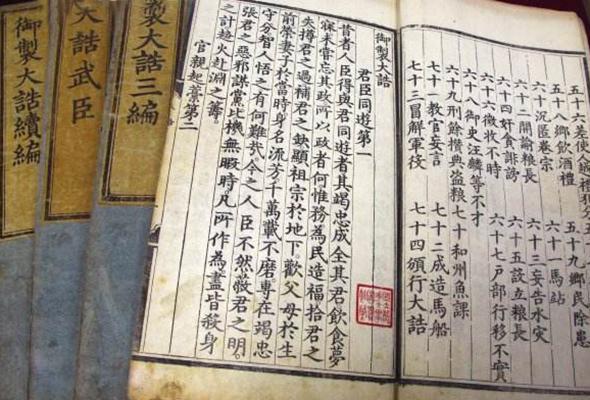 五十六差使人越禮犯分
五十八鄉飲酒禮 五十九鄉民除患
六十沉匿卷宗 六十一馬站
六十二開諭糧長 六十三妄告水災
六十四奸貪誹謗 六十五設立糧長
六十六徵收不時 六十七戶部行移不實
六十八御史汪麟等不才
六十九刑餘攢典盜糧 七十和州魚課
七十一教官妄言 七十二成造馬船
七十三冒解軍役 七十四頒行大誥
御製大誥
君臣同遊第一
昔者人臣得與君同遊者其竭忠成全其君飲食夢
寐未嘗忘其政所以政者何惟務為民造福拾君之
失撙君之過補君之缺顯祖宗於地下歡父母於生
前榮妻子於當時身名流芳千萬載不磨專在竭忠
守分智人悟之有何難哉。今之人臣不然蔽君之明。
張君之惡邪謀黨比機無暇時。凡所作為盡皆殺身
之計趨火赴淵之籌。
官親起藁第二
製大誥三編
大誥武臣
御製大誥續編